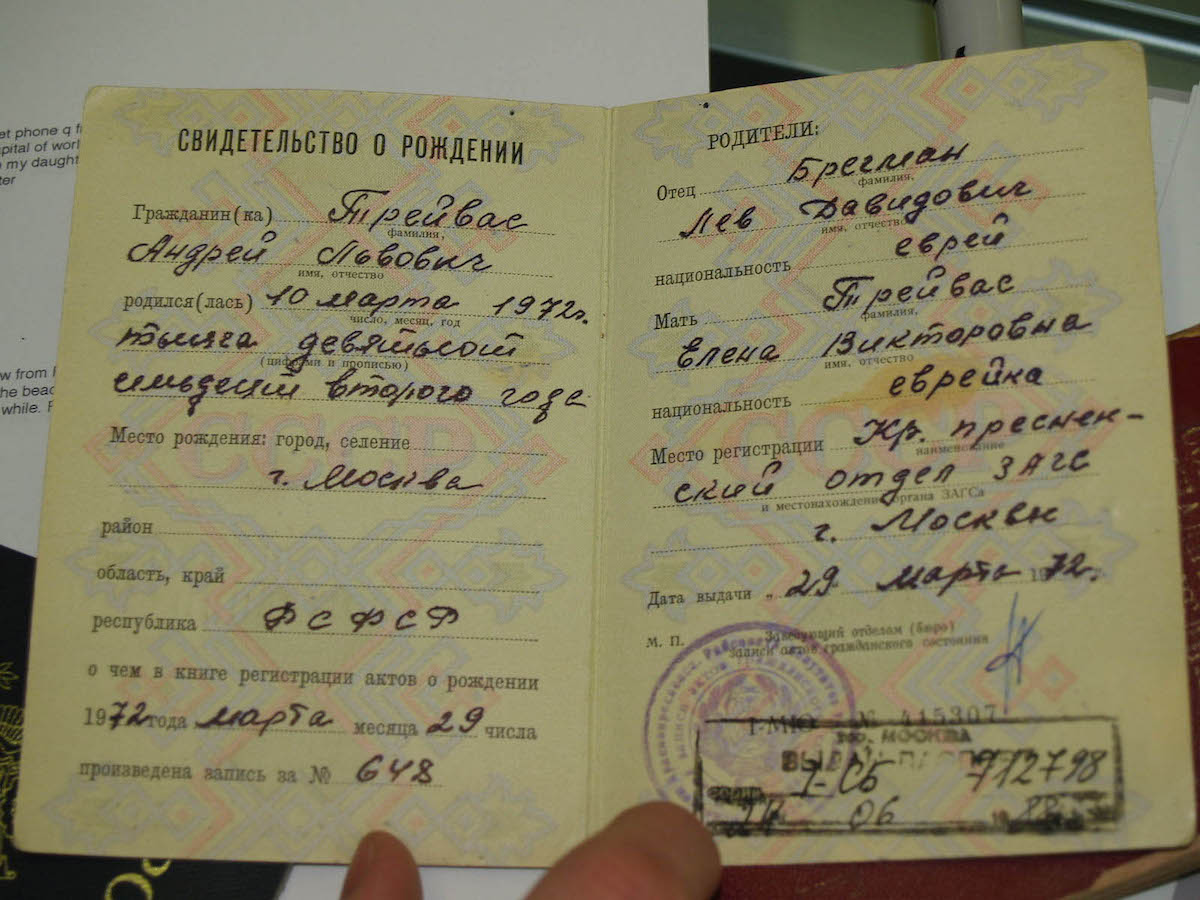 et phone q fi
pital of worl
my daught
ter
w from
the beac
while. F
СВИДЕТЕЛЬСТВО О РОЖДЕНИИ
Гражданин(ка) Трейвас
фамилия,
Андрей Львович
имя, отчество
родился(лась) 10 марта 1972г.
число, месяц, год
тысяча девятьсот
(цифрами и прописью)
семьдесят второго года
Место рождения: город, селение
г. Москва
район
область, край
республика РСФСР
о чем в книге регистрации актов о рождении
1972 года марта месяца 29 числа
произведена запись за № 648
РОДИТЕЛИ:
Отец Брегман
фамилия,
Лев Давидович
имя, отчество
национальность еврей
Мать Трейвас
фамилия,
Елена Викторовна
имя, отчество
национальность еврейка
Место регистрации Кр. преснен-
наименование
ский отдел ЗАГС
и местонахождение органа ЗАГСа
г. Москвы
Дата выдачи „ 29 марта 1972.
М. П. Заведующий отделом (бюро)
записи актов гражданского состояния
I-МЮ № 415307
гор. МОСКВА
ВЫДАН ПАСПОРТ
I-СБ 712798
06 1988